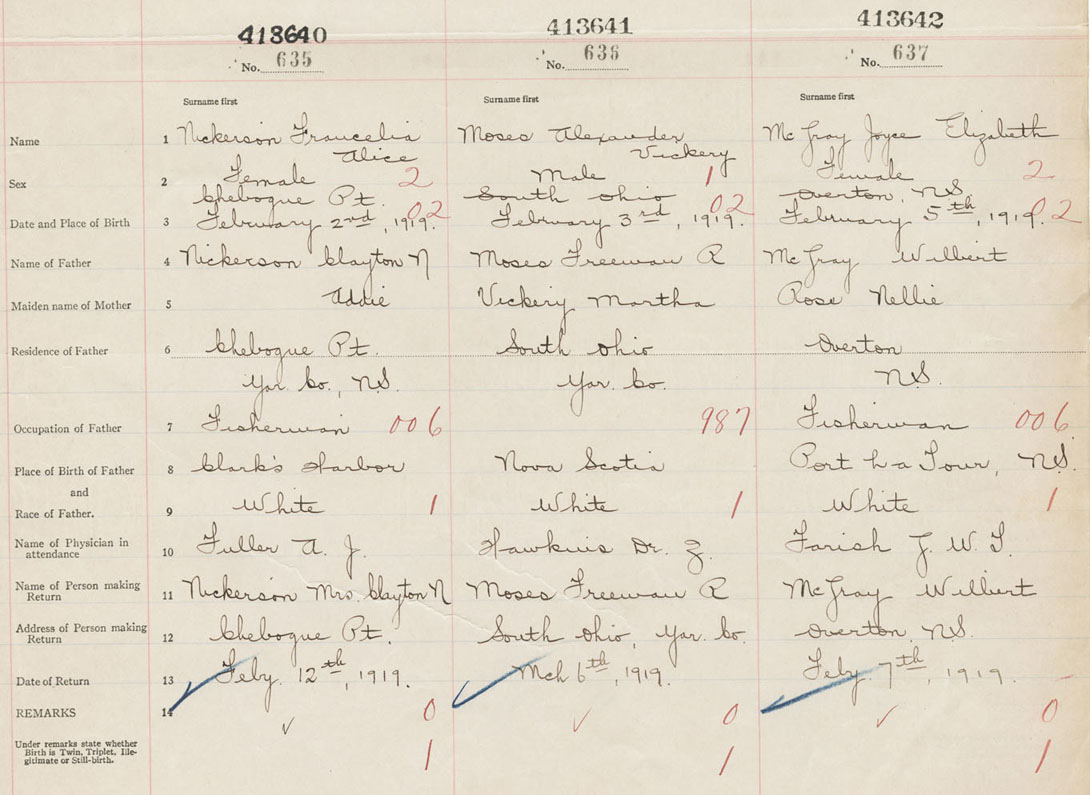 413640 413641 413642
No. 635 No. 636 No. 637
Surname first Surname first Surname first
Name 1 Nickerson Francelia Moses Alexander Mc Gray Joyce Elizabeth
Alice Vickery
Sex 2 Female 2 Male 1 Female 2
Chebogue Pt. South Ohio Overton, N.S.
Date and Place of Birth 3 February 2nd, 1919. 02 February 3rd, 1919. 02 February 5th, 1919. 02
Name of Father 4 Nickerson Clayton N Moses Freeman R McGray Wilbert
Maiden name of Mother 5 Addie Vickery Martha Rose Nellie
Residence of Father 6 Chebogue Pt. South Ohio Overton
Yar. Co., N.S. Yar. Co. N.S.
Occupation of Father 7 Fisherman 006 987 Fisherman 006
Place of Birth of Father 8 Clark's Harbor Nova Scotia Port La Tour, N.S.
and
Race of Father. 9 White 1 White 1 White 1
Name of Physician in
attendance 10 Fuller A. J. Hawkins Dr. Z. Farish J. W. T.
Name of Person making
Return 11 Nickerson Mrs. Clayton N Moses Freeman R McGray Wilbert
Address of Person making
Return 12 Chebogue Pt. South Ohio, Yar. Co. Overton, N.S.
Date of Return 13 Feby. 12th, 1919. Mch 6th, 1919. Feby. 7th, 1919.
REMARKS 14 ✓ 0 ✓ 0 ✓ 0
Under remarks state whether
Birth is Twin, Triplet, Ille-
gitimate or Still-birth. 1 1 1